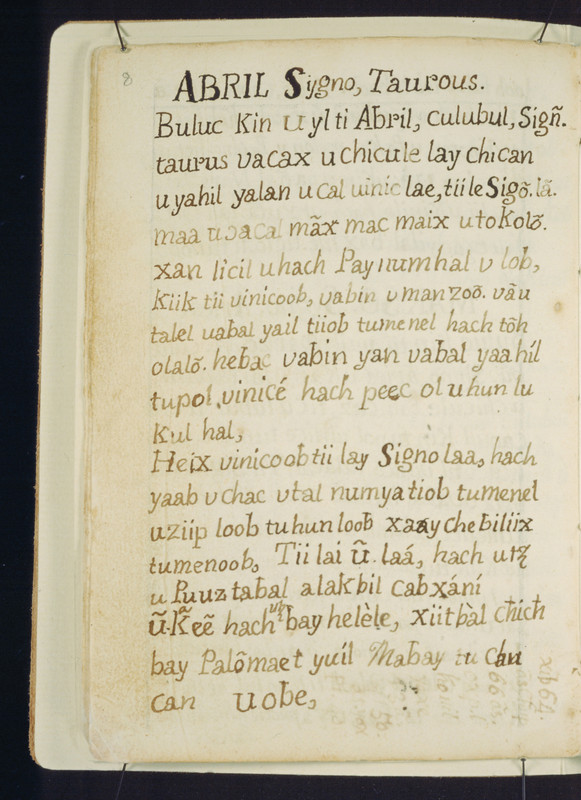 8
ABRIL Sygno, Taurous.
Buluc Kin u ylti Abril, culubul, Sigñ.
taurus vacax u chicule lay chican
u yahil yalan u cal uinic lae, tii le Sigõ. lã.
maa u ɔacal mãx mac maix u tokolõ.
xan licil u hach Paynumhal v lob,
Kiik tii vinicoob, vabin v man zoõ. vãu
talel uabal yail tiiob tumenel hach tõh
olalõ. hebac vabin yan vabal yaahil
tupol, vinicé hach peec ol u hun lu
Kul hal,
Heix vinicoob tii lay Signo laa, hach
yaab v chac vtal numyatiob tumenel
u ziip loob tu hun loob xaay che biliix
tumenoob. Tii lai ũ. laá, hach utz
u Puuz tabal alakbil cabxání
ũ. Kẽẽ hach utz bay helèle, xiitbàl chich
bay Palõmaet yuíl Mabay tu chan
can u obe,